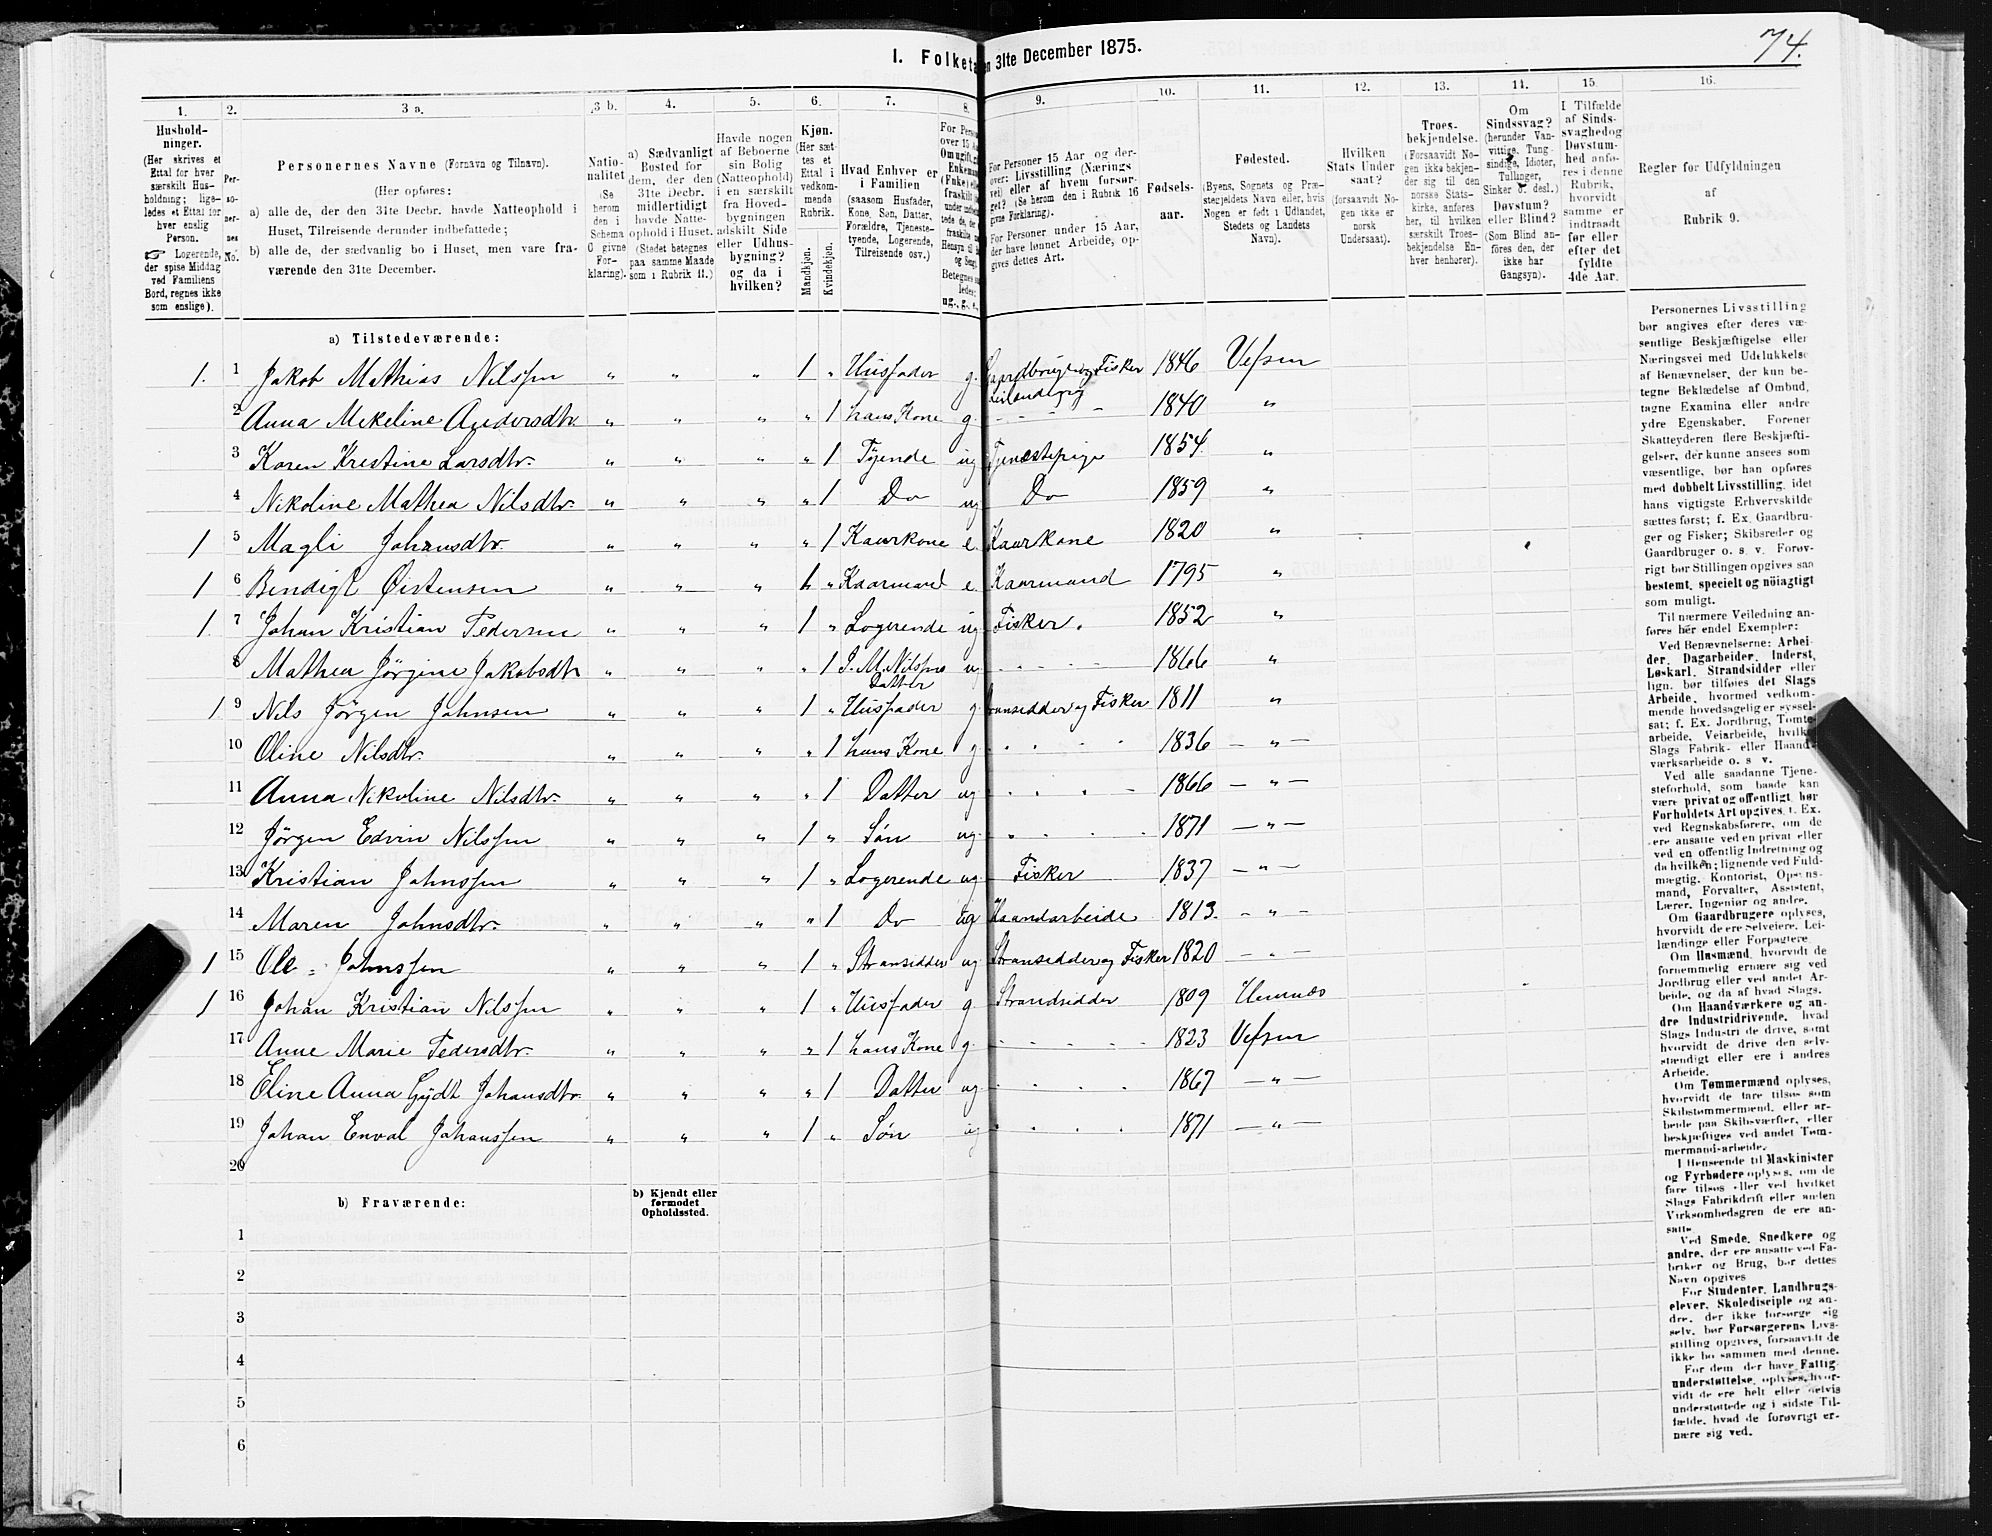 I. Folketæ
en 31te December 1875.
74.
1.
2.
3 a.
3 b.
4.
5.
6.
7.
8.
9.
10.
11.
12.
13.
14.
15.
16.
Hushold-
ninger.
(Her skrives et
Ettal for hver
særskilt Hus-
holdning; lige-
ledes et Ettal for
hver enslig
Person.
Logerende,
der spise Middag
ved Familiens
Bord, regnes ikke
som enslige).
Per-
so-
ner-
nes
No.
Personernes Navne (Fornavn og Tilnavn).
(Her opføres:
a) alle de, der den 31te Decbr. havde Natteophold i
Huset, Tilreisende derunder indbefattede;
b) alle de, der sædvanlig bo i Huset, men vare fra-
værende den 31te December.
Natio-
nalitet
(Se
herom
den i
Schema
O givne
For-
klaring).
a) Sædvanligt
Bosted for
dem, der den
31te Decbr.
midlertidigt
havde Natte-
ophold i Huset.
(Stedet betegnes
paa samme Maade
som i Rubrik 11.)
Havde nogen
af Beboerne
sin Bolig
(Natteophold)
i en særskilt
fra Hoved-
bygningen
adskilt Side
eller Udhus-
bygning?
og da i
hvilken?
Kjøn.
(Her sæt-
tes et
Ettal i
vedkom-
mende
Rubrik.
Mandkjøn.
Kvindekjøn.
Hvad Enhver er
i Familien
(saasom Husfader,
Kone, Søn, Datter,
Forældre, Tjeneste-
tyende, Logerende,
Tilreisende osv.)
For Perso
over 15 Aa
Om ugift, g
Enkeman
(Enke) elle
fraskilt
ug., g., e.,
For Personer 15 Aar og der-
over: Livsstilling (Nærings
vei) eller af hvem forsør-
get? (Se herom den i Rubrik 16
givne Forklaring).
For Personer under 15 Aar,
der have lønnet Arbeide, op-
gives dettes Art.
Fødsels-
aar.
Fødested.
(Byens, Sognets og Præ-
stegjeldets Navn eller, hvis
Nogen er født i Udlandet,
Stedets og Landets
Navn).
Hvilken
Stats Under
saat?
(forsaavidt No-
gen ikke er
norsk
Undersaat).
Troes-
bekjendelse.
(Forsaavidt No-
gen ikke bekjen-
der sig til den
norske Stats-
kirke, anføres
her, til hvilken
særskilt Troes-
bekjendelse En-
hver henhører).
Om
Sindssvag?
(herunder Van-
vittige, Tung-
sindige, Idioter,
Tullinger,
Sinker o. desl.)
Døvstum?
eller Blind?
(Som Blind an-
føres den, der
ikke har
Gangsyn).
I Tilfælde
af Sinds-
svaghed og
Døvstum-
hed anfø-
res i denne
Rubrik,
hvorvidt
samme er
indtraadt
før eller
efter det
fyldte
4de Aar.
Regler for Udfyldningen
af
Rubrik 9.
a) Tilstedeværende:
1. 1 Jakob Mathias Nilssen " " " 1 " Husfader g. Gaardbruger og Fisker 1846 Vefsen
Leilænding
2 Anna Mekeline Andersdtr. " " " " 1 hans Kone g. - - - - 1840 "
3 Karen Krestine Larsdtr. " " " " 1 Tyende ug Tjenestepige 1854. "
4 Nikoline Mathea Nilsdtr. " " " " 1 Do ug Do 1859 "
1 5 Magli Johansdtr. " " " " 1 Kaarkone e. Kaarkone 1820 "
1 6 Bendigt Øistensen " " " 1 " Kaarmand e. Kaarmand 1795 "
1. 7 Johan Kristian Pedersen " " " 1 " Logerende ug Fisker. 1852 "
8 Mathea Jørgine Jakobsdtr " " " " 1 J. M. Nilssens u - - - - 1866 "
Datter
1 9 Nils Jørgen Johnsen " " " 1 " Husfader g. Stransidder og Fisker 1811 "
10 Oline Nilsdtr. " " " " 1 hans Kone g " " " " 1836 — " —
11 Anna Nikoline Nilsdtr. " " " " 1 Datter ug " " " - 1866 — " —
12 Jørgen Edvin Nilssen " " " 1 " Søn ug. " " " " 1871 — " —
13 Kristian Johnssen " " " 1 " Logerende ug Fisker 1837 — " —
14 Maren Johnsdtr. " " " " 1 Do ug Haandarbeide 1813. — " —
1 15 Ole Johnssen " " " 1 " Stransidder ug Stransidder og Fisker 1820 — " —
1 16 Johan Kristian Nilssen " " " 1 " Husfader g Strandsidder 1809 Hemnæs
17 Anne Marie Pedersdtr. " " " " 1 hans Kone g. - - - - 1823 Vefsen
18 Eline Anna Gydt Johansdtr. " " " " 1 Datter ug " " " " 1867 — " —
19 Johan Enval Johanssen " " " 1 " Søn ug " " " " 1871 — " —
20
b) Fraværende:
b) Kjendt eller
formodet
Opholdssted.
1
2
3
4
5
6
Personernes Livsstilling
bør angives efter deres væ-
sentlige Beskjæftigelse eller
Næringsvei med Udelukkelse
af Benævnelser, der kun be-
tegne Beklædelse af Ombud,
tagne Examina eller andre
ydre Egenskaber. Forener
Skatteyderen flere Beskjæfti-
gelser, der kunne ansees som
væsentlige, bør han opføres
med dobbelt Livsstilling, idet
hans vigtigste Erhvervskilde
sættes først; f. Ex. Gaardbru-
ger og Fisker; Skibsreder og
Gaardbruger o. s. v. Forøv-
rigt bør Stillingen opgives saa
bestemt, specielt og nöiagtigt
som muligt.
Til nærmere Veiledning an-
føres her endel Exempler:
Ved Benævnelserne: Arbei-
der, Dagarbeider, Inderst,
Løskarl, Strandsidder eller
lign. bør tilføies det Slags
Arbeide, hvormed vedkom-
mende hovedsagelig er syssel-
sat; f. Ex. Jordbrug, Tømte-
arbeide, Veiarbeide, hvilke
Slags Fabrik- eller Haand-
værksarbeide o. s v.
Ved alle saadanne Tjene-
steforhold, som baade kan
være privat og offentligt, bør
Forholdets Art opgives, t. Ex.
ved Regnskabsførere, om de
ere ansatte ved en privat eller
ved en offentlig Indretning og
da hvilken; lignende ved Fuld-
mægtig, Kontorist, Opsyns-
mand, Forvalter, Assistent,
Lærer, Ingeniør og andre.
Om Gaardbrugere oplyses,
hvorvidt de ere Selveiere, Lei-
lændinge eller Forpagtere
Om Husmænd, hvorvidt de
fornemmelig ernære sig ved
Jordbrug eller ved andet Ar-
beide, og da af hvad Slags.
Om Haandværkere og an-
dre Industridrivende, hvad
Slags Industri de drive, samt
hvorvidt de drive den selv-
stændigt eller ere i andres
Arbeide.
Om Tømmermænd oplyses,
hvorvidt de fare tilsøs som
Skibstømmermænd, eller ar-
beide paa Skibsværfter, eller
beskjæftiges ved andet Tøm-
mermand-arbeide.
I Henseende til Maskinister
og Fyrbødere oplyses, om de
fare tilsøs eller ved hvilket
Slags Fabrikdrift eller anden
Virksomhedsgren de ere an-
satte
Ved Smede, Snedkere og
andre, der ere ansatte ved Fa-
briker og Brug, bør dettes
Navn opgives
For Studenter, Landbrugs-
elever, Skoledisciple og an-
dre, der ikke forsørge sig
selv, bør Forsørgerens Livs-
stilling opgives, forsaavidt de
ikke bo sammen med denne.
For dem, der have Fattig-
understøttelse, oplyses, hvor-
vidt de ere helt eller delvis
understøttede og i sidste Til-
fælde, hvad de forøvrigt er-
nære sig ved.